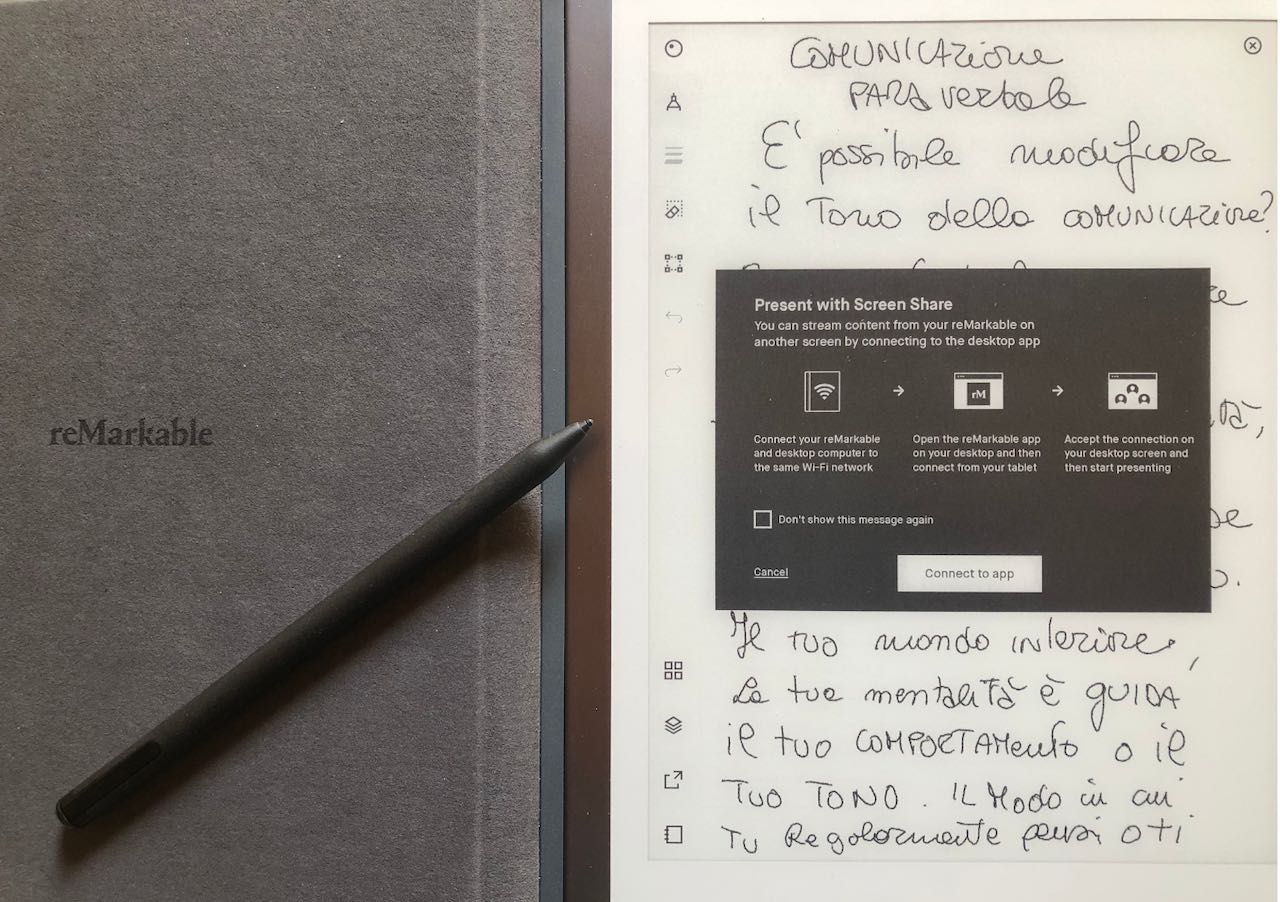 reMarkable
COMUNICAZione
PARA verbale
E' possibile modificare
il Tono della COMUNICAZione?
Present with Screen Share
You can stream content from your reMarkable on
another screen by connecting to the desktop app
rM
Connect your reMarkable
and desktop computer to
the same Wi-Fi network
Open the reMarkable app
on your desktop and then
connect from your tablet
Accept the connection on
your desktop screen and
then start presenting
Don't show this message again
Cancel
Connect to app
Il tuo mondo interiore,
La tua mentalità è GUIDA
il tuo COMPORTAMento o il
TUO TONO. IL Modo in cui
TU Regolarmente pensi o ti